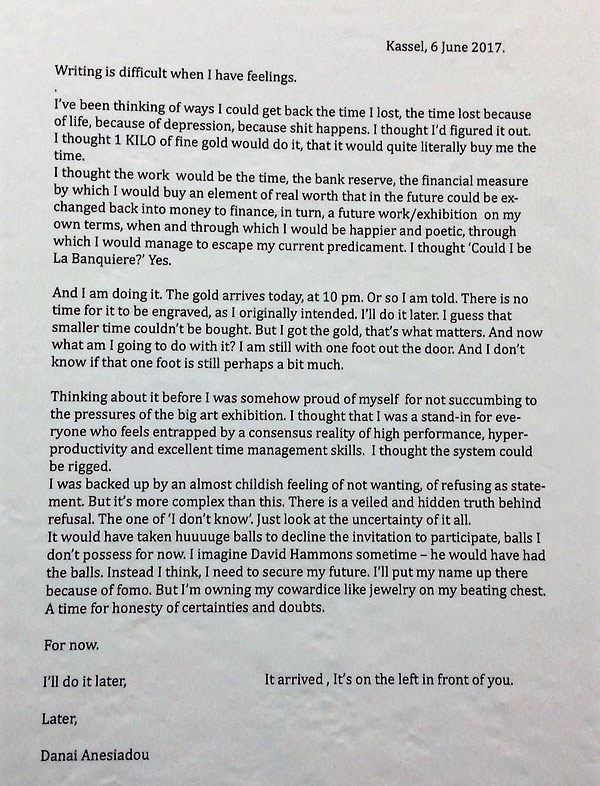 Kassel, 6 June 2017.
Writing is difficult when I have feelings.
.
I've been thinking of ways I could get back the time I lost, the time lost because
of life, because of depression, because shit happens. I thought I'd figured it out.
I thought 1 KILO of fine gold would do it, that it would quite literally buy me the
time.
I thought the work  would be the time, the bank reserve, the financial measure
by which I would buy an element of real worth that in the future could be ex-
changed back into money to finance, in turn, a future work/exhibition  on my
own terms, when and through which I would be happier and poetic, through
which I would manage to escape my current predicament. I thought 'Could I be
La Banquiere?' Yes.
And I am doing it. The gold arrives today, at 10 pm. Or so I am told. There is no
time for it to be engraved, as I originally intended. I'll do it later. I guess that
smaller time couldn't be bought. But I got the gold, that's what matters. And now
what am I going to do with it? I am still with one foot out the door. And I don't
know if that one foot is still perhaps a bit much.
Thinking about it before I was somehow proud of myself  for not succumbing to
the pressures of the big art exhibition. I thought that I was a stand-in for eve-
ryone who feels entrapped by a consensus reality of high performance, hyper-
productivity and excellent time management skills.  I thought the system could
be rigged.
I was backed up by an almost childish feeling of not wanting, of refusing as state-
ment. But it's more complex than this. There is a veiled and hidden truth behind
refusal. The one of 'I don't know'. Just look at the uncertainty of it all.
It would have taken huuuuge balls to decline the invitation to participate, balls I
don't possess for now. I imagine David Hammons sometime – he would have had
the balls. Instead I think, I need to secure my future. I'll put my name up there
because of fomo. But I'm owning my cowardice like jewelry on my beating chest.
A time for honesty of certainties and doubts.
For now.
I'll do it later, It arrived , It's on the left in front of you.
Later,
Danai Anesiadou